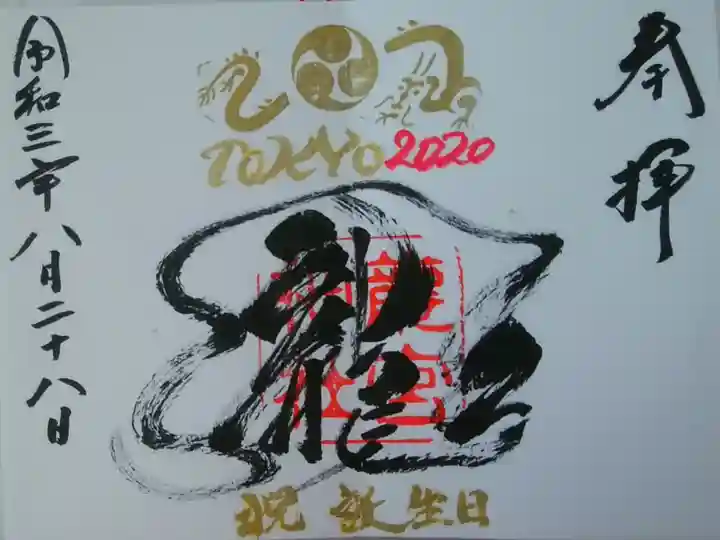 奉拝
TOKYO 2020
龍
龍宮
祝誕生日
令和三年八月二十八日